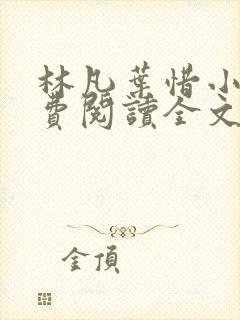 林凡葉惜小
費閱讀全文
金頂